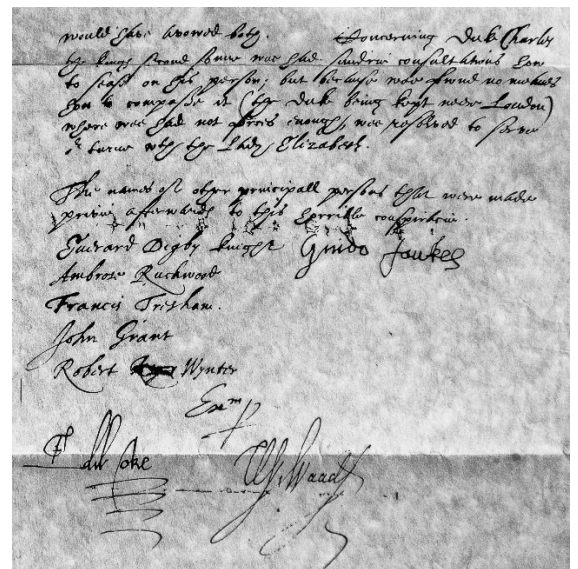 would have avowed both. Concerning Duke Charles
the kings second sonne wee had sundrie consultations how
to sease on his person; but because wee found no meanes
how to compasse it (the Duke being kept neer London)
where wee had not forces enough, wee resolved to serve
or turne with the Lady Elizabeth.
The names of other principall persons that were made
privie afterwards to this horrible conspiracie.
Everard Digby knight Guido fawkes
Ambrose Ruckwood
Francis Tresham.
John Grant
Robert Wynter
Exm p
Edw Coke W. Waad